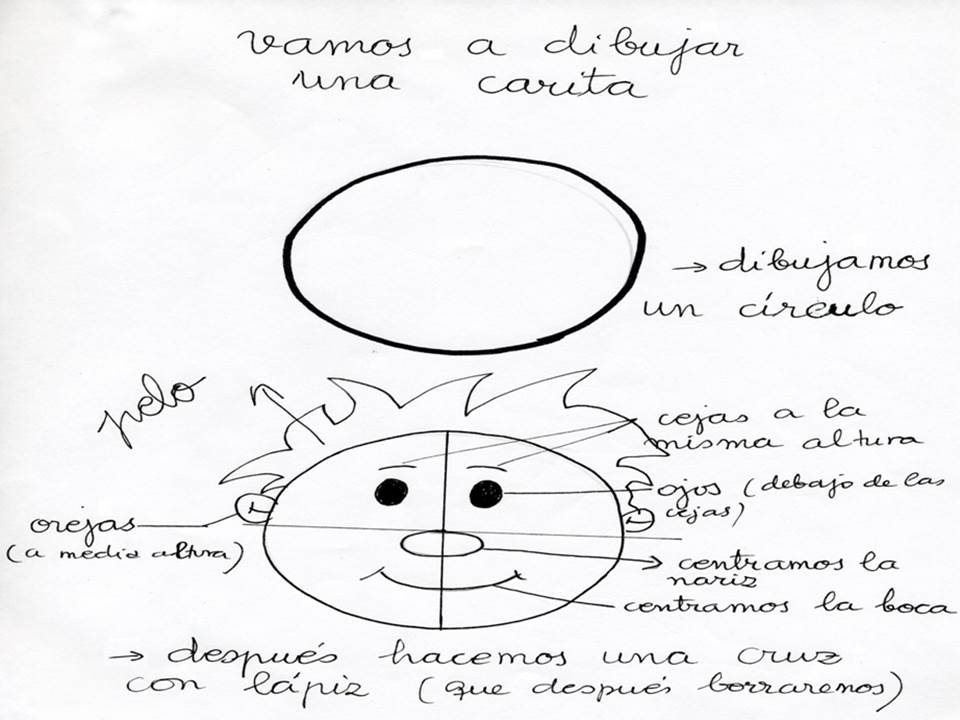 vamos a dibujar
una carita
→ dibujamos
un círculo
pelo
cejas a la
misma altura
ojos (debajo de las
cejas)
orejas
(a media altura)
centramos la
nariz
centramos la boca
→ después hacemos una cruz
con lápiz (que después borraremos)